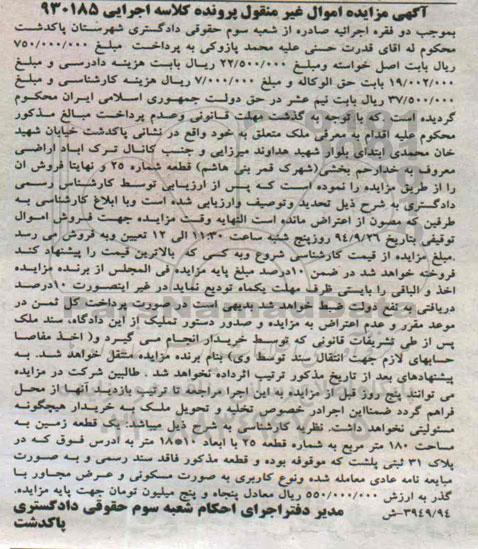 آگهی مزایده اموال غیر منقول پرونده کلاسه اجرایی ۹۳۰۱۸۵
بموجب دو فقره اجرائیه صادره از شعبه سوم حقوقی دادگستری شهرستان پاکدشت
محکوم له اقای قدرت حسنی علیه محمد پازوکی به پرداخت مبلغ ۷۵۰/۰۰۰/۰۰۰
ریال بابت اصل خواسته ومبلغ ۲۲/۵۰۰/۰۰۰ ریال بابت هزینه دادرسی و مبلغ
۱۹/۰۰۲/۰۰۰ بابت حق الوکاله و مبلغ ۷/۰۰۰/۰۰۰ ریال هزینه کارشناسی و مبلغ
۳۷/۵۰۰/۰۰۰ ریال بابت نیم عشر در حق دولت جمهوری اسلامی ایران محکوم
گردیده است که با توجه به گذشت مهلت قانونی وصدم پرداخت مبالغ مذکور
محکوم علیه اقدام به معرفی ملک متعلق به خود واقع در نشانی پاکدشت خیابان شهید
خان محمدی ابتدای بلوار شهید هداوند میرزایی و جنب کانال ترک اباد اراضی
معروف به خدارحم بخشی(شهرک قمر بنی هاشم) قطعه شماره ۲۵ و نهایتا فروش ان
را از طریق مزایده را نموده است که پس از ارزیابی توسط کارشناس رسمی
دادگستری به شرح ذیل تحدید وتوصیف وارزیابی شده است وبا ابلاغ کارشناسی به
طرفین که مصون از اعتراض مانده است النهایه وقت مزایده جهت فروش اموال
توقیفی بتاریخ ۹۴/۹/۲۶ روزپنج شنبه ساعت ۱۱:۳۰ الی ۱۲ تعیین وبه فروش می رسد
.مبلغ مزایده از قیمت کارشناسی شروع وبه کسی که بالاترین قیمت را پیشنهاد کند
فروخته خواهد شد در ضمن ۱۰درصد مبلغ پایه مزایده فی المجلس از برنده مزایده
اخذ و الباقی را بایستی ظرف مهلت یکماه تودیع نماید در غیر اینصورت ۱۰درصد
دریافتی به نفع دولت ضبط خواهد شد بدیهی است در صورت پرداخت کل ثمن در
موعد مقرر و عدم اعتراض به مزایده و صدور دستور تملیک از این دادگاه، سند ملک
پس از طی تشریفات قانونی که توسط خریدار انجام می گیرد و( اخذ مفاصا
حسابهای لازم جهت انتقال سند توسط وی) بنام برنده مزایده منتقل خواهد شد. به
پیشنهادهای بعد از تاریخ مذکور ترتیب اثرداده نخواهد شد . طالبین شرکت در مزایده
می توانند پنج روز قبل از مزایده به این اجرا مراجعه تا ترتیب بازدید آنها از محل
فراهم گردد ضمنااین اجرادر خصوص تخلیه و تحویل ملک به خریدار هیچگونه
مسئولیتی نخواهد داشت. نظریه کارشناس به شرح ذیل میباشد: یک قطعه زمین به
مساحت ۱۸۰ متر مربع به شماره قطعه ۲۵ با ابعاد ۱۰*۱۸ متر به آدرس فوق که در
پلاک ۳۱ ثبتی پلشت که موقوفه بوده و قطعه مذکور فاقد سند رسمی و به صورت
مبایعه نامه عادی معامله شده ونوع کاربری به صورت مسکونی و عرض مجاور با
گذر به ارزش ۵۵۰/۰۰۰/۰۰۰ ریال معادل پنجاه و پنج میلیون تومان جهت پایه مزایده.
۳۹۴۹/۹۴-ش مدیر دفتراجرای احکام شعبه سوم حقوقی دادگستری
پاکدشت